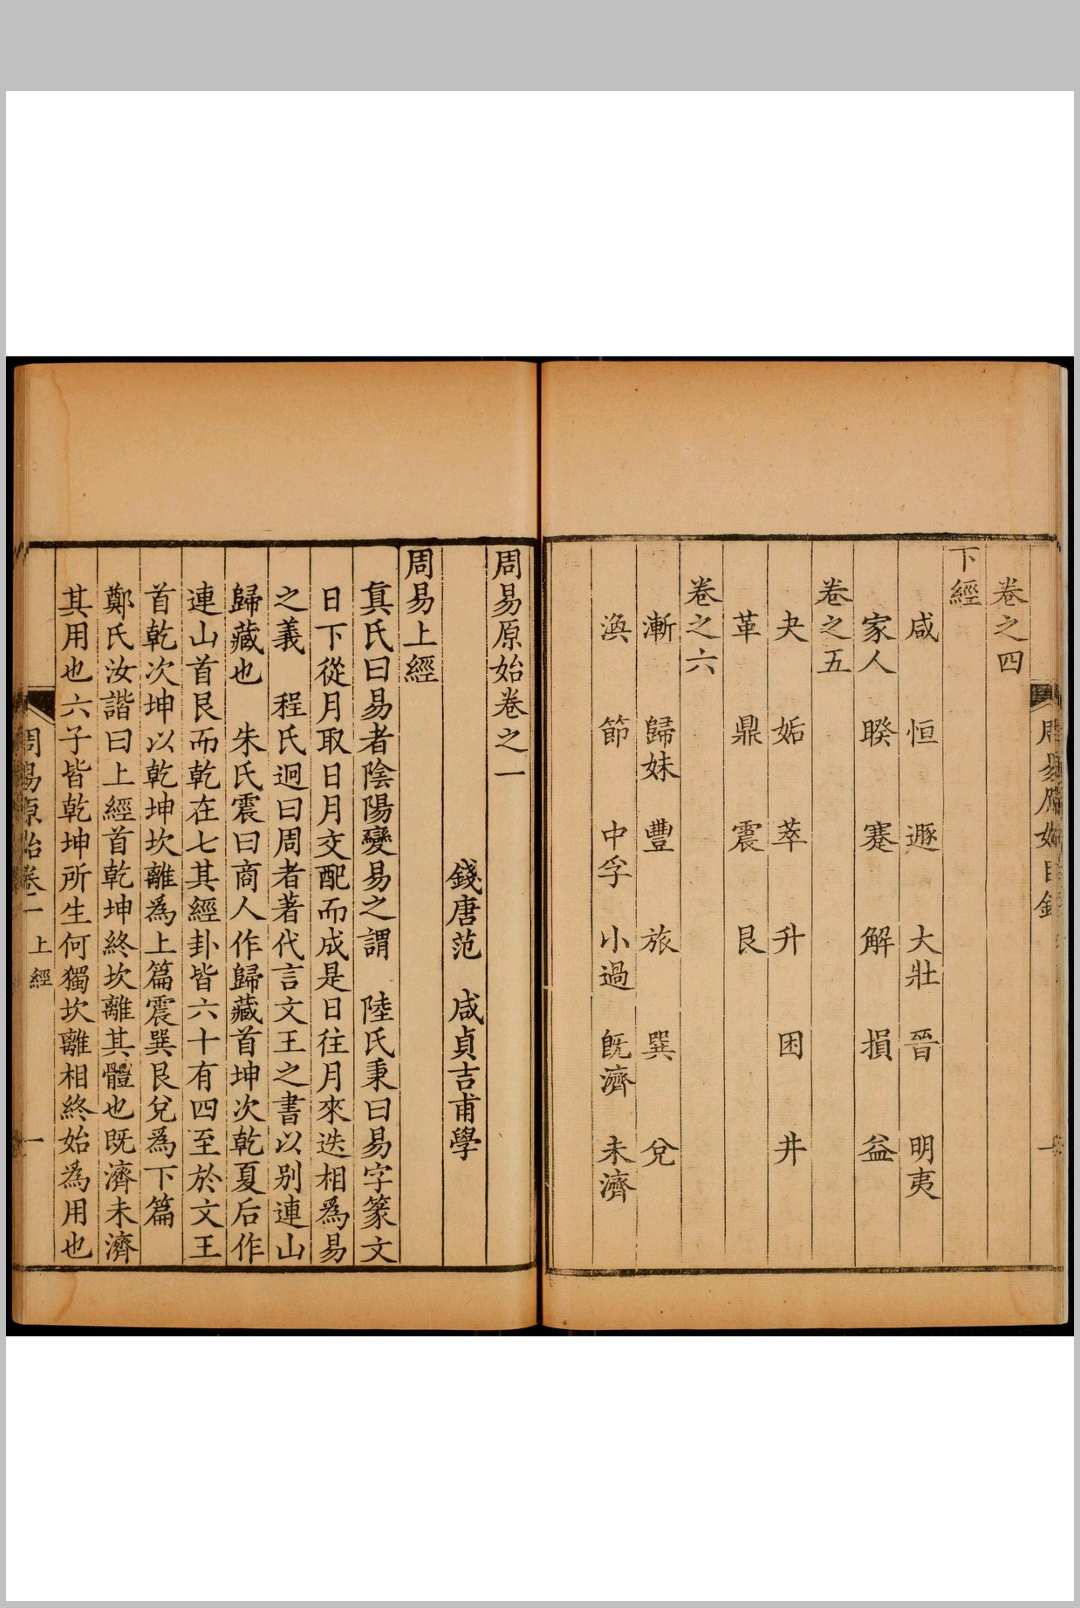 卷之四
下經
咸 恒 遯 大壯 晉 明夷
家人 睽 蹇 解 損 益
卷之五
夬 姤 萃 升 困 井
革 鼎 震 艮
卷之六
漸 歸妹 豐 旅 巽 兌
渙 節 中孚 小過 既濟 未濟
周易原始卷之一
錢唐范 咸貞吉甫學
周易上經
眞氏曰易者陰陽變易之謂 陸氏秉曰易字篆文
日下從月取日月交配而成是日往月來迭相爲易
之義 程氏迥曰周者著代言文王之書以別連山
歸藏也 朱氏震曰商人作歸藏首坤次乾夏后作
連山首艮而乾在七其經卦皆六十有四至於文王
首乾次坤以乾坤坎離爲上篇震巽艮兌爲下篇
鄭氏汝諧曰上經首乾坤終坎離其體也既濟未濟
其用也六子皆乾坤所生何獨坎離相終始爲用也
周易原始卷一 上經 一